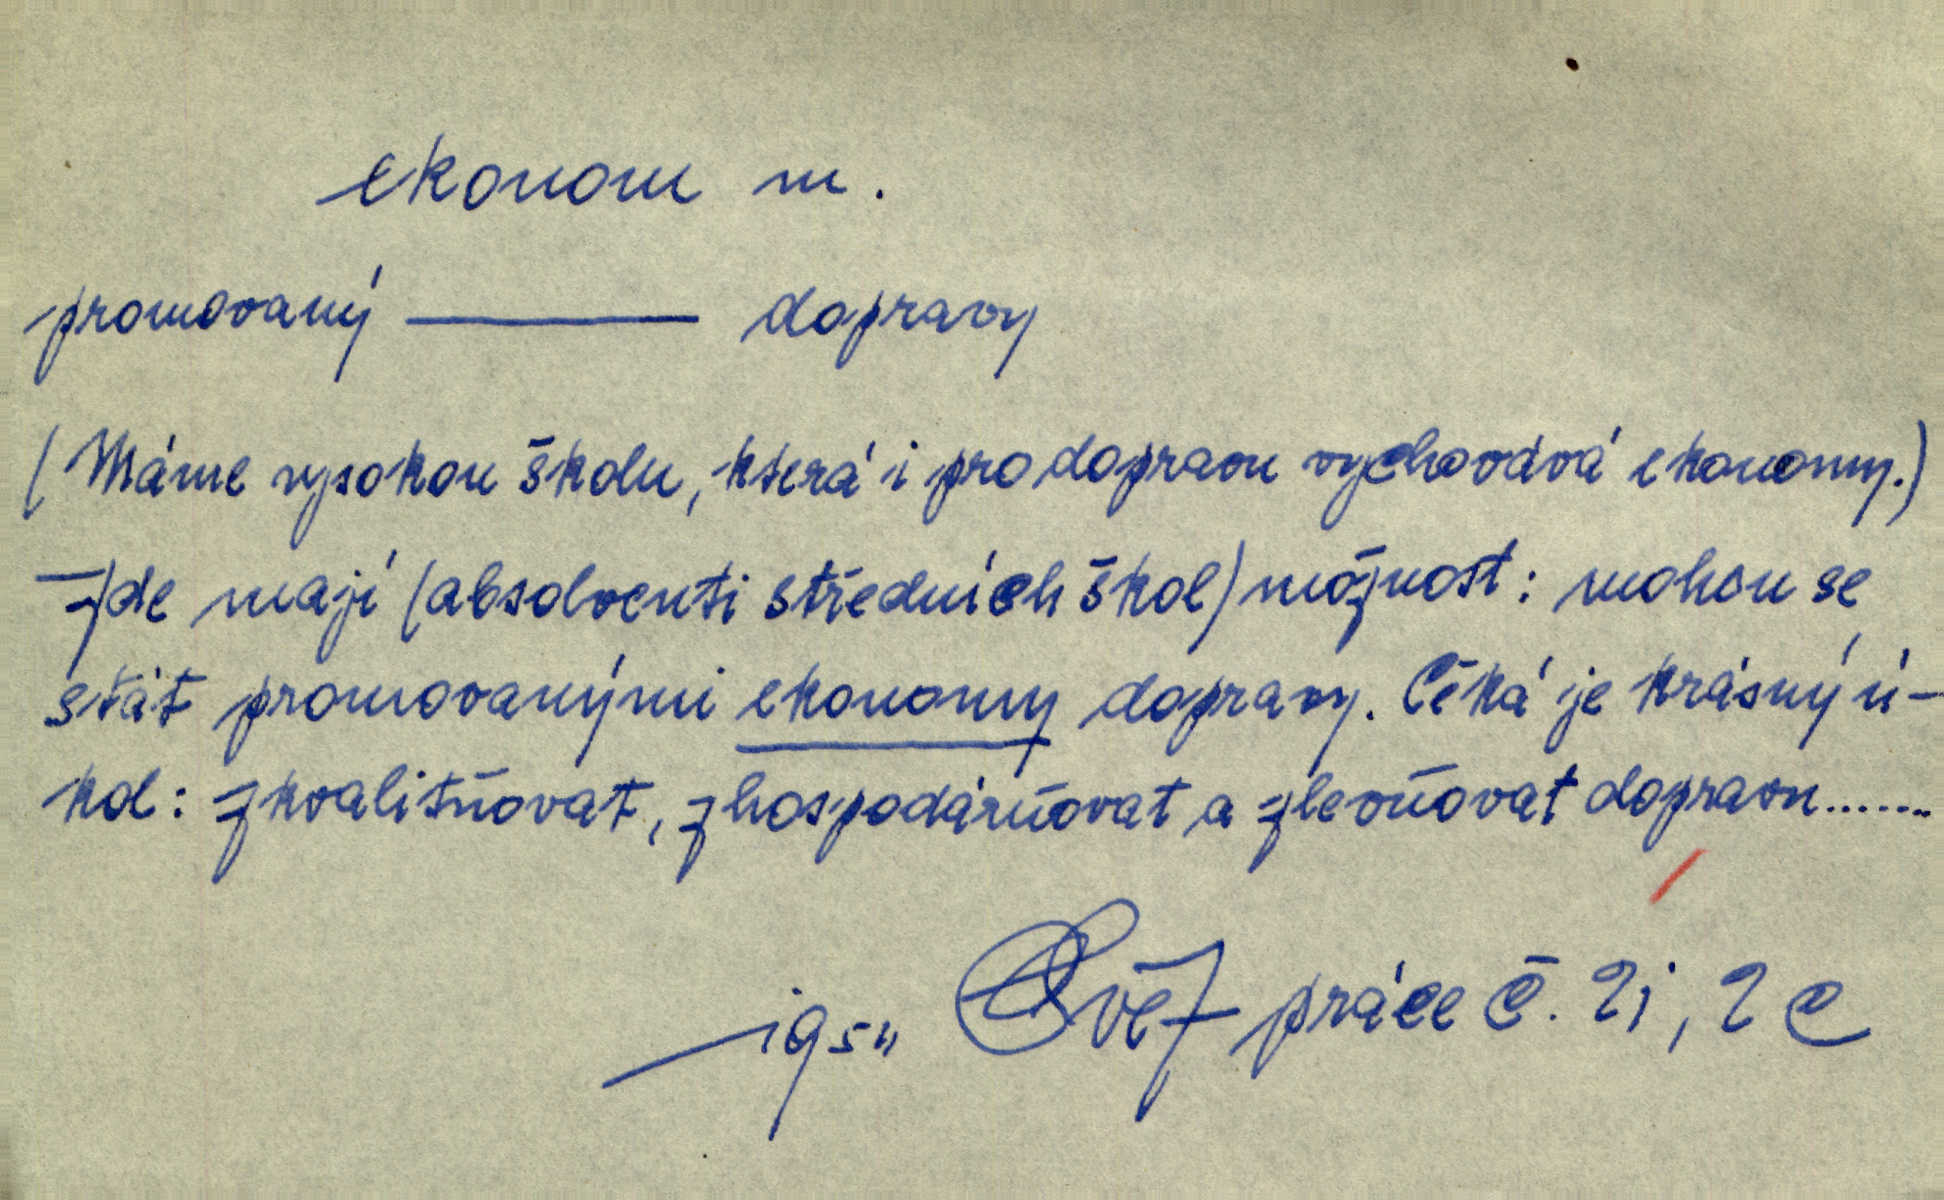 ekonom m.
promovaný ——— dopravy
(Máme vysokou školu, která i pro dopravu vychovává ekonomy.)
Zde mají (absolventi středních škol) možnost: mohou se
stát promovanými ekonomy dopravy. Čeká je krásný ú-
kol: zkvalitňovat, zhospodárňovat a zlevňovat dopravu.......
práce č. 2i, 2c